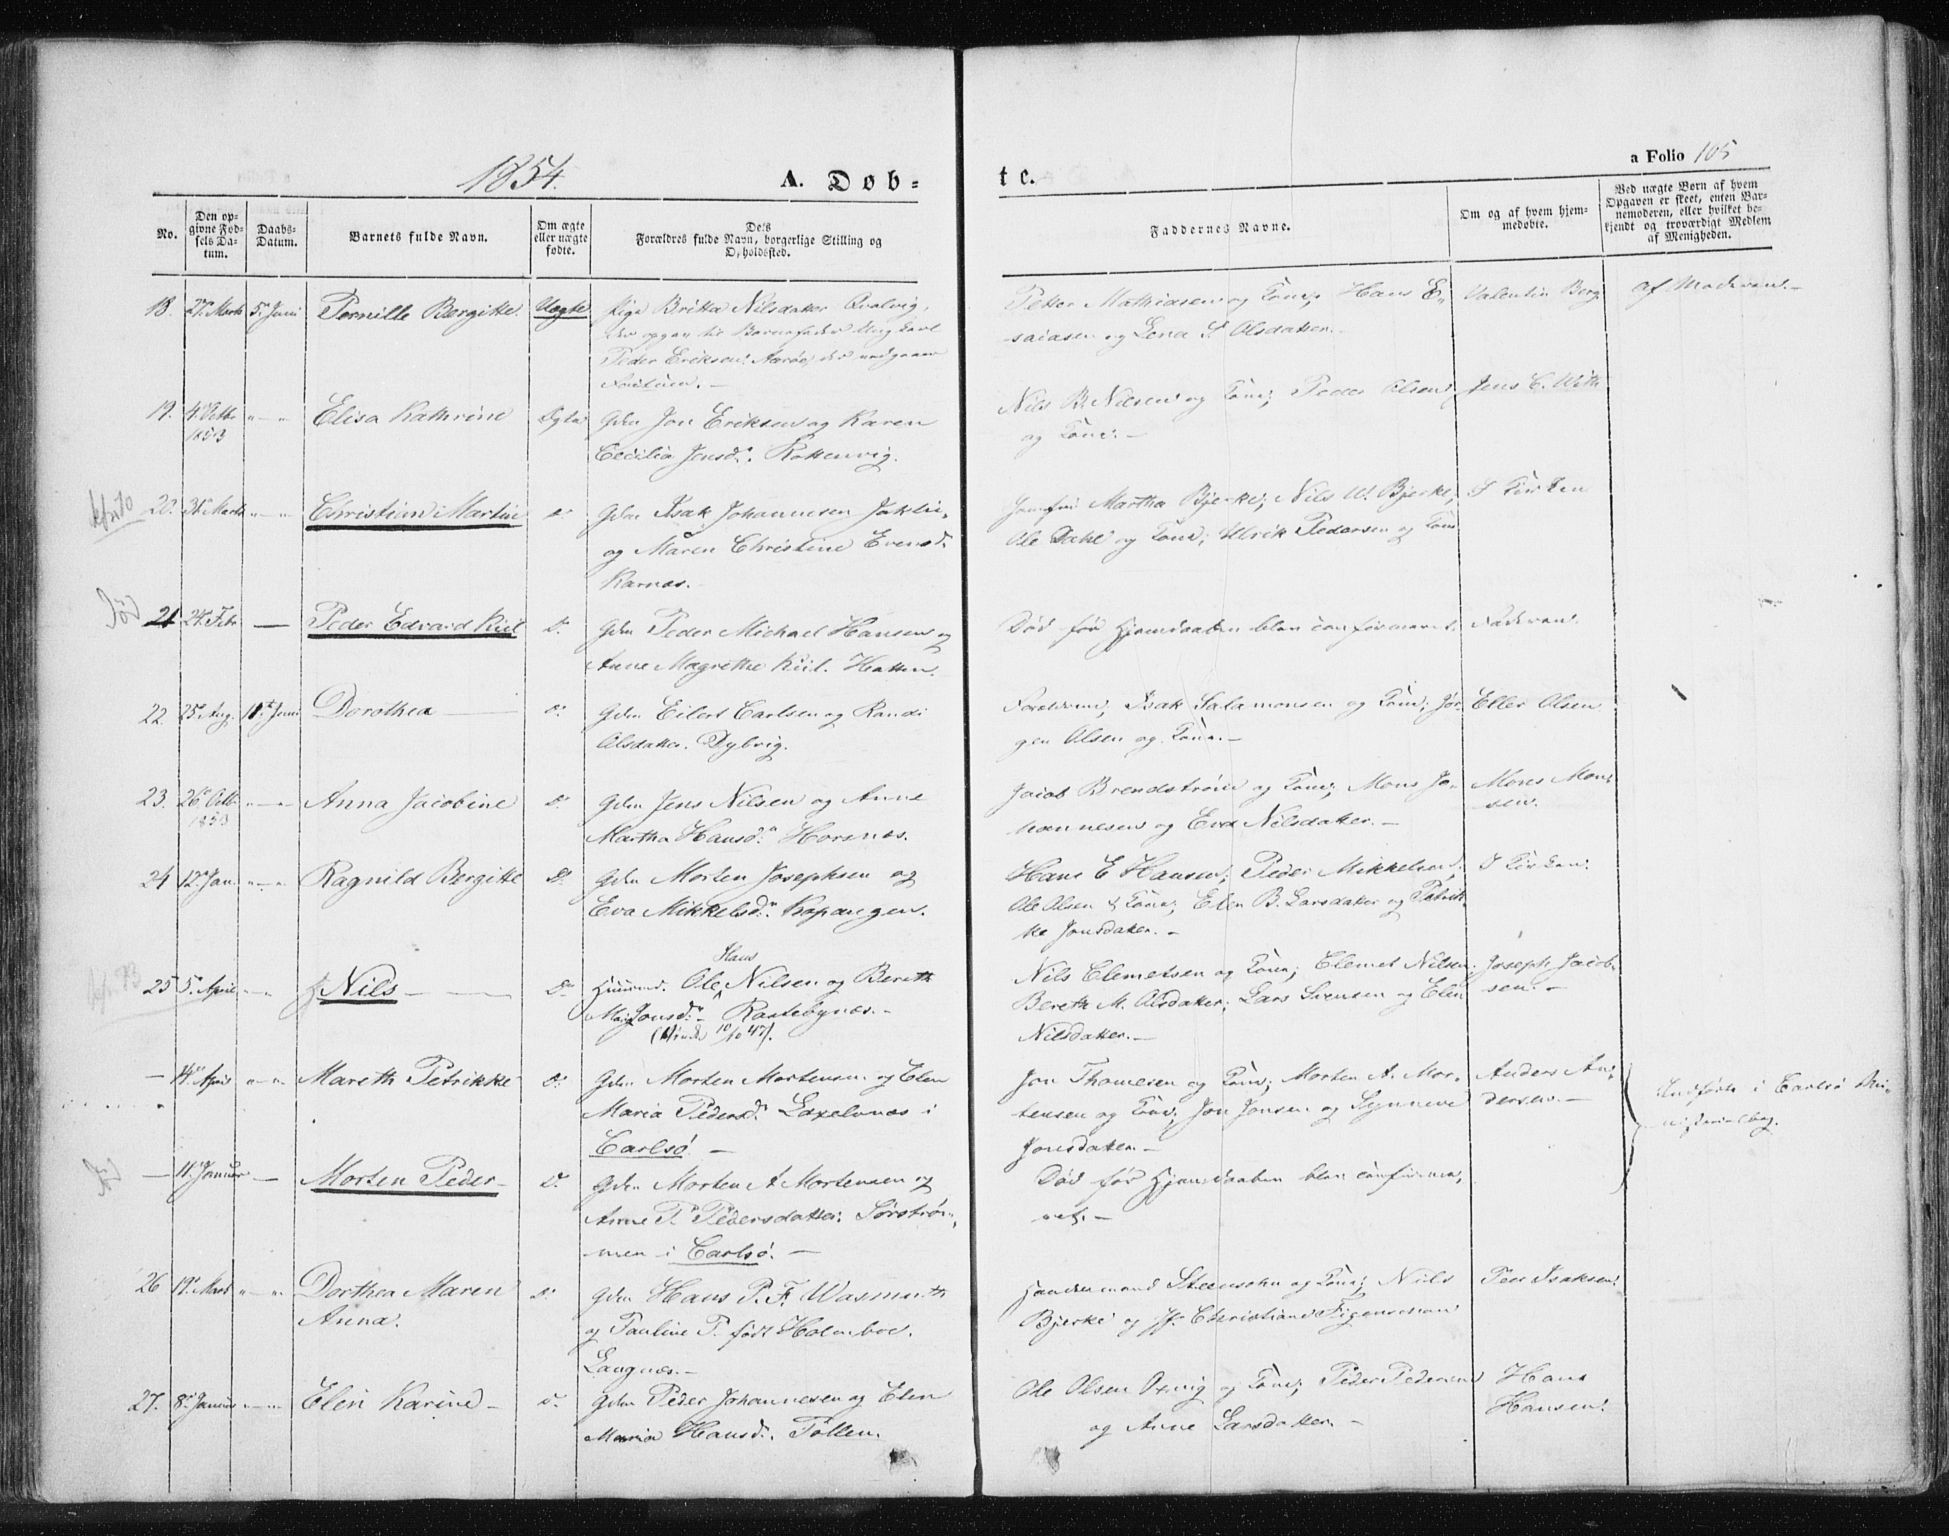 1854.
A. Døb-
te.
a Folio 105
No.
Den op-
givne Fød-
sels Da-
tum.
Daabs-
Datum.
Barnets fulde Navn.
Om ægte
eller uægte
fødte.
Dets
Forældres fulde Navn, borgerlige Stilling og
Opholdssted.
Faddernes Navne.
Om og af hvem hjem-
medøbte.
Ved uægte Børn af hvem
Opgaven er skeet, enten Bar-
nemoderen, eller hvilket be-
kjendt og troværdigt Medlem
af Menigheden.
18. 27. Marts 5. Juni Pernille Bergitte Uægte Pige Britha Nilsdatter Qvalvig,
der opgav til Barnefader Ungkarl
Peder Eriksen
Petter Mathiasen og Kone; Hans E-
saiasen og Lena S. Olsdatter.
Valentin Berg
af Moderen.
19. 4. Octb. 1853 Elisa Kathrine Ægte Gdm Jon Eriksen og Karen
Cecilia Jensd. Rottenvig.
Nils B. Nilsen og Kone; Peder Olsen
og Kone.
Jens C. With
20. 31. Marts Christian Martin Do Gdm Isak Johannesen
og Maren Christine Evensd.
Karnæs.
Jomfru Martha Bjerke; Nils W. Bjerke;
Ole Dahl og Kone; Ulrik Pedersen og Kone
I Kirken
Død
21 24. Febr. — Peder Edvard Kiil Do Gdm Peder Michael Hansen og
Anne Magrethe Kiil. Hatten.
Død før Hjemdaaben blev confirmeret.
Faderen.
22. 25. Aug. 11. Juni Dorothea Do Gdm Eilert Carlsen og Randi
Olsdatter. Dybvig.
Forældrene; Isak Salamonsen og Kone; Jør-
gen Olsen og Kone.
Eller Olsen
23. 26. Octb. 1853 Anna Jacobine Do Gdm Jens Nilsen og Anne
Martha Hansd. Horsnæs.
Jacob Brendstrøm og Kone; Mons Jo-
hannesen og Eva Nilsdatter.
Mons Mon-
sen.
24 12. Jan. Ragnild Bergitte Do Gdm Morten Josephsen og
Eva Mikkelsd. Kopangen.
Hans E Hansen; Peder Mikkelsen;
Ole Olsen & Kone; Elen B. Larsdatter og Petrik-
ke Jonsdatter.
I Kirken.
25 5. April Nils Do Huusmd. Ole Hans Nilsen og Bereth
Jonsd. Rastebynæs.
Nils Clemetsen og Kone; Clemet Nilsen;
Bereth M. Olsdatter; Lars Svensen og Elen
Nilsdatter.
Joseph Jacob-
sen.
— 14. April Mareth Petrikke Do Gdm Morten Mortensen og Elen
Maria Pedersd. Laxelvnæs i
Carlsø.
Jon Thomesen og Kone; Morten A. Mor-
tensen og Kone; Jon Jonsen og Synneve
Jonsdatter.
Anders An-
dersen.
Indførte i Carlsø Mi-
nisterialbog.
— 11. Januar — Morten Peder Do Gdm Morten A Mortensen og
Anne P. Pedersdatter. Sørstrøm-
men i Carlsø.
Død før Hjemdaaben blev confirme-
ret.
26 19. Marts Dorthea Maren
Anna. Do Gdm Hans P. F. Wasmuth
og Pauline P. født Holmboe.
Langnæs.
Handelsmand Steensohn og Kone; Nils
Bjerke og Jfr. Christiane Figenschou
Peer Isaksen
27. 8. Januar Elen Karine Do Gdm Peder Johannesen og Elen
Maria Hansd. Tollen.
Ole Olsen og Kone; Peder Pedersen
og Anne Larsdatter.
Hans
Hansen